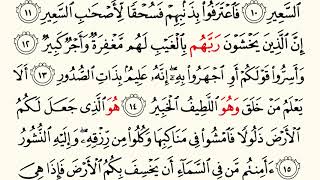 السَّعِيرِ ١٠ فَاعْتَرَفُوا بِذَنبِهِمْ فَسُحْقًا لِّأَصْحَابِ السَّعِيرِ ١١
إِنَّ الَّذِينَ يَخْشَوْنَ رَبَّهُم بِالْغَيْبِ لَهُم مَّغْفِرَةٌ وَأَجْرٌ كَبِيرٌ ١٢
وَأَسِرُّوا قَوْلَكُمْ أَوِ اجْهَرُوا بِهِ إِنَّهُ عَلِيمٌ بِذَاتِ الصُّدُورِ ١٣ أَلَا
يَعْلَمُ مَنْ خَلَقَ وَهُوَ اللَّطِيفُ الْخَبِيرُ ١٤ هُوَ الَّذِي جَعَلَ لَكُمُ
الْأَرْضَ ذَلُولًا فَامْشُوا فِي مَنَاكِبِهَا وَكُلُوا مِن رِّزْقِهِ وَإِلَيْهِ النُّشُورُ
١٥ ءَأَمِنتُم مَّن فِي السَّمَاءِ أَن يَخْسِفَ بِكُمُ الْأَرْضَ فَإِذَا هِيَ